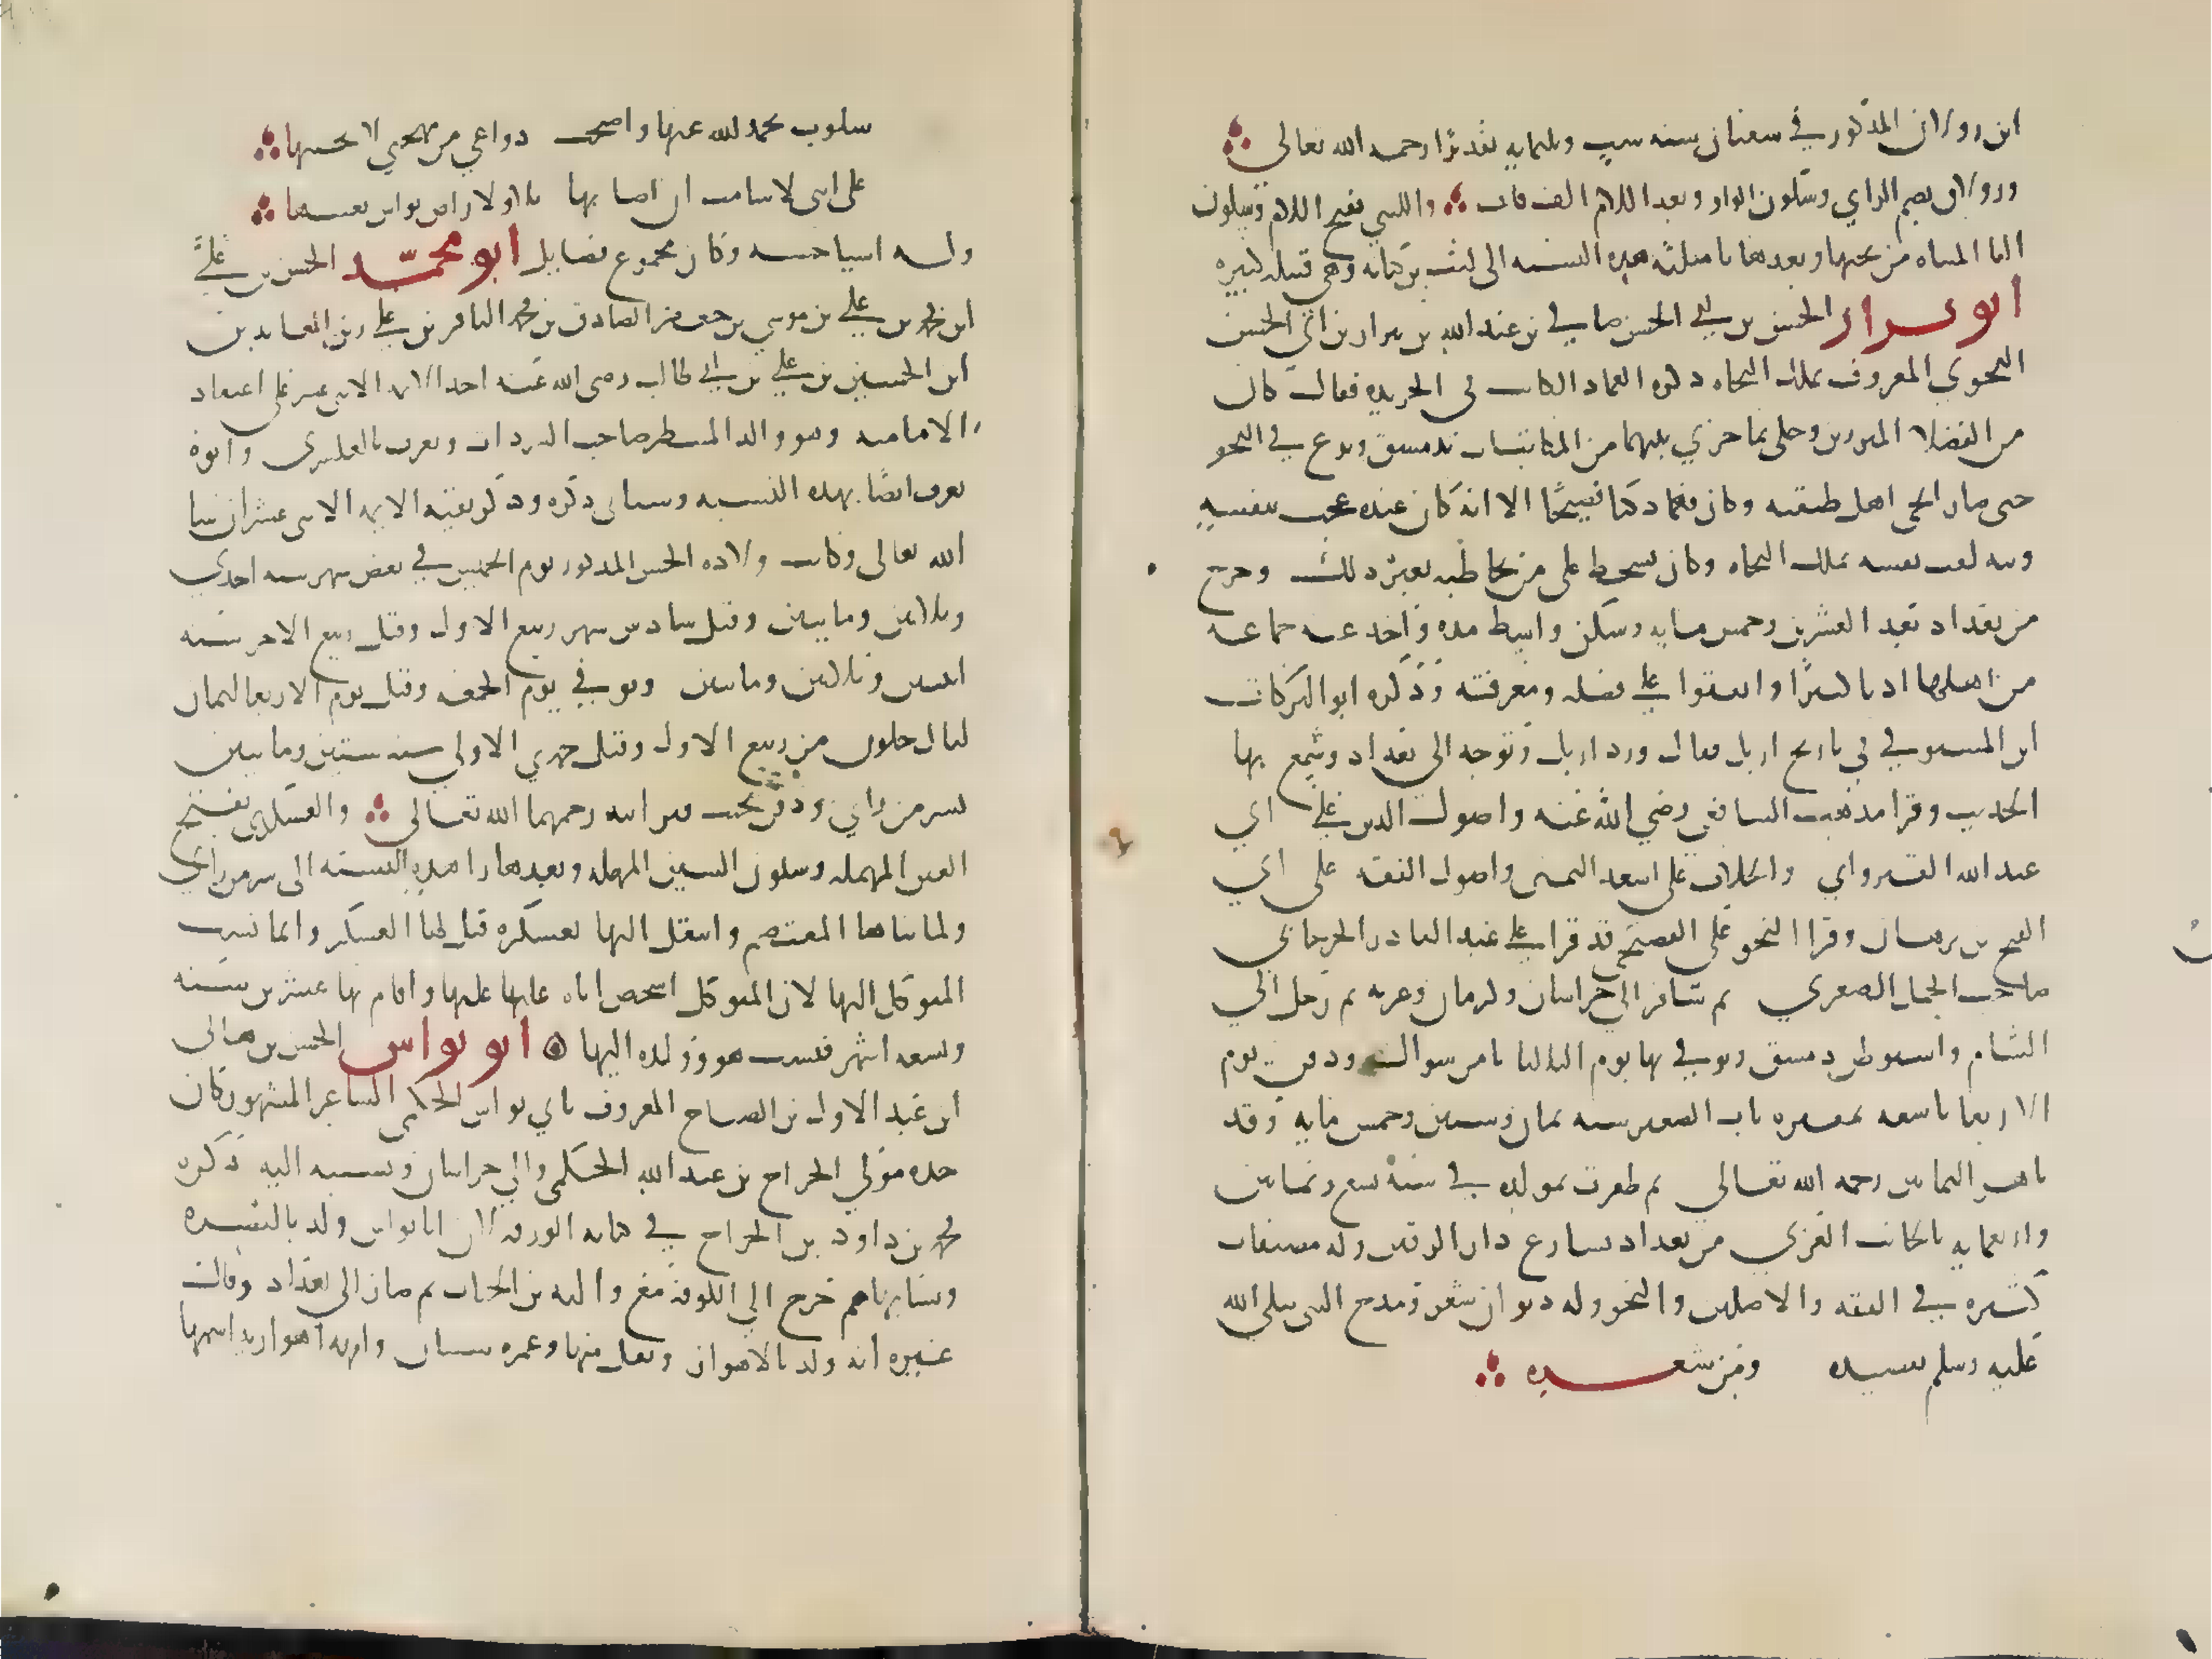 ابن زولاق المذكور في شعبان سنه ست وثلثمايه تقديرا رحمه الله تعالى
وزولاق بضم الزاي وسكون الواو وبعد اللام الف قاف والليثي بفتح اللام وسكون
اليا المثناه من تحتها وبعدها ثا مثلثه هذه النسبه الى ليث بن كنانه وهي قبيله كبيره
ابو نزار الحسن بن ابي الحسن صافي بن عبد الله بن نزار بن ابي الحسن
النحوي المعروف بملك النحاه ذكره العماد الكاتب في الخريده فقال كان
من الفضلا المبرزين وحكى ما جري بينهما من المكاتبات بدمشق وبرع في النحو
حتى صار انحى اهل طبقته وكان فهما ذكيا فصيحا الا انه كان عنده عجب بنفسه
وتيه لقب نفسه بملك النحاه وكان يسخط على من يخاطبه بغير ذلك وخرج
من بغداد بعد العشرين وخمس مايه وسكن واسط مده واخذ عنه جماعه
من اهلها ادبا كثيرا واتفقوا على فضله ومعرفته وذكره ابو البركات
ابن المستوفي في تاريخ اربل فقال ورد اربل وتوجه الى بغداد وسمع بها
الحديث وقرا مذهب الشافعي رضي الله عنه واصول الدين على ابي
عبد الله القيرواني والخلاف على اسعد الميهني واصول الفقه على ابي
الفتح بن برهان وقرا النحو على الفصيحي قد قرا على عبد القادر الجرجاني
صاحب الجمل الصغري ثم سافر الى خراسان وكرمان وغزنه ثم رحل الي
الشام واستوطن دمشق وتوفي بها يوم الثلاثا ثامن شوال ودفن يوم
الاربعا تاسعه بمقبره باب الصغير سنه ثمان وستين وخمس مايه وقد
ناهز الثمانين رحمه الله تعالى ثم ظفرت بمولده في سنة تسع وثمانين
واربعمايه بالجانب الغربي من بغداد بشارع دار الرقيق وله مصنفات
كثيره في الفقه والاصلين والنحو وله ديوان شعر ومدح النبي صلي الله
عليه وسلم بقصيده ومن شعره
سلوت بحمد الله عنها واصبحت دواعي من نحوي لا تحسبها
على انني لا شامت ان اصابها بلا ولا راض بواش يعيبها
وله اشيا حسنه وكان مجموع فضايل ابو محمد الحسن بن علي
ابن محمد بن علي بن موسي بن جعفر الصادق بن محمد الباقر بن علي زين العابدين
ابن الحسين بن علي بن ابي طالب رضي الله عنه احد الايمه الاثني عشر على اعتقاد
الاماميه وهو والد المنتظر صاحب السرداب ويعرف بالعسكري وابوه
يعرف ايضا بهذه النسبه وسياتي ذكره وذكر بقية الايمه الاثني عشر ان شا
الله تعالى وكانت ولاده الحسن المذكور يوم الخميس في بعض شهر سنه احدي
وثلاثين ومايتين وقيل سادس شهر ربيع الاول وقيل ربيع الاخر سنه
اثنتين وثلاثين ومايتين وتوفي يوم الجمعه وقيل يوم الاربعا لثمان
ليال خلون من ربيع الاول وقيل جمدي الاولي سنه ستين ومايتين
بسر من راي ودفن بجنب قبر ابيه رحمهما الله تعالى والعسكري بفتح
العين المهمله وسكون السين المهمله وبعدها را هذه النسبه الى سر من راي
ولما بناها المعتصم وانتقل اليها بعسكره قيل لها العسكر وانما نسب
المتوكل اليها لان المتوكل اشخص اباه عليها عليها واقام بها عشرين سنه
وتسعه اشهر فنسب هو وولده اليها ابو نواس الحسن بن هاني
ابن عبد الاول بن الصباح المعروف بابي نواس الحكمي الشاعر المشهور كان
جده مولي الجراح بن عبد الله الحكمي والي خراسان ونسبه اليه ذكره
محمد بن داود بن الجراح في كتابه الورقه لان ابا نواس ولد بالبصره
ونشا بها ثم خرج الي الكوفة مع والبه بن الحباب ثم صار الى بغداد وقال
غيره انه ولد بالاهواز ونقل منها وعمره سنتان وامه اهوازيه اسمها